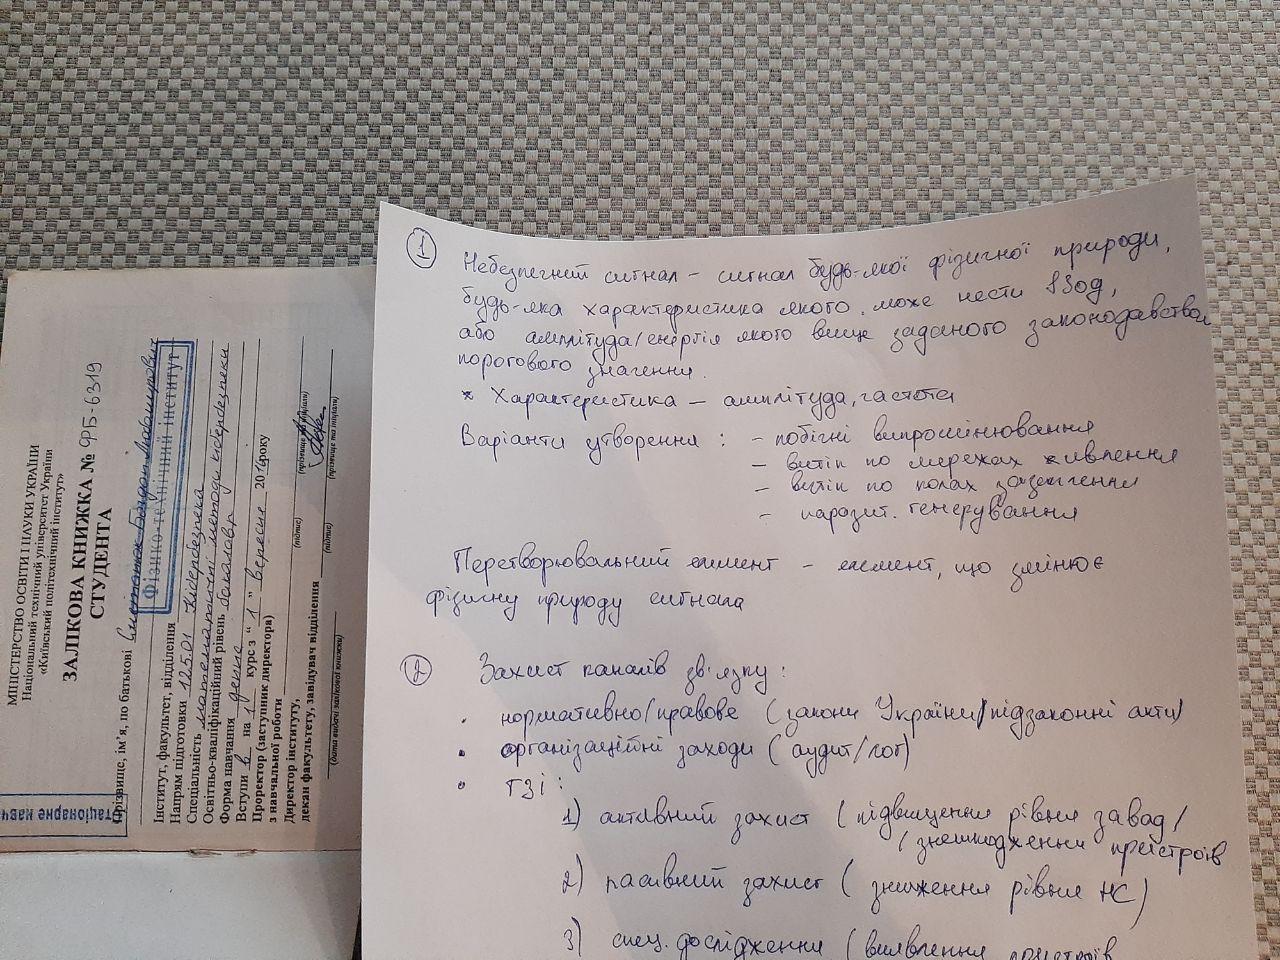 МІНІСТЕРСТВО ОСВІТИ І НАУКИ УКРАЇНИ
Національний технічний університет України
«Київський політехнічний інститут»
ЗАЛІКОВА КНИЖКА № ФБ-6319
СТУДЕНТА
Прізвище, ім'я, по батькові Богдан Любомирович
Фізико-технічний інститут
Інститут, факультет, відділення
Напрям підготовки 125.01 Кібербезпека
Спеціальність математичні методи кібербезпеки
Освітньо-кваліфікаційний рівень бакалавр
Форма навчання денна
Вступи в на 1 курс з "1" вересня 2016року
Проректор (заступник директора)
з навчальної роботи
(підпис) (прізвище та ініціали)
Директор інституту,
декан факультету, завідувач відділення
(підпис) (прізвище та ініціали)
(дата видачі залікової книжки)
таціонарне навч
1
Небезпечний сигнал – сигнал будь-якої фізичної природи,
будь-яка характеристика якого може нести ІЗОД,
або амплітуда/енергія якого вище заданого законодавством
порогового значення.
* Характеристика – амплітуда, частота
Варіанти утворення : – побічні випромінювання
– витік по мережах живлення
– витік по колах заземлення
– паразит. генерування
Перетворювальний елемент – елемент, що змінює
фізичну природу сигнала
2
Захист каналів зв'язку :
· нормативно/правове (закони України/підзаконні акти)
· організаційні заходи (аудит/лог)
· ТЗІ :
1) активний захист (підвищення рівня завад/
/знешкодження пристроїв
2) пасивний захист (зниження рівня НС)
3) спец. дослідження (виявлення пристроїв